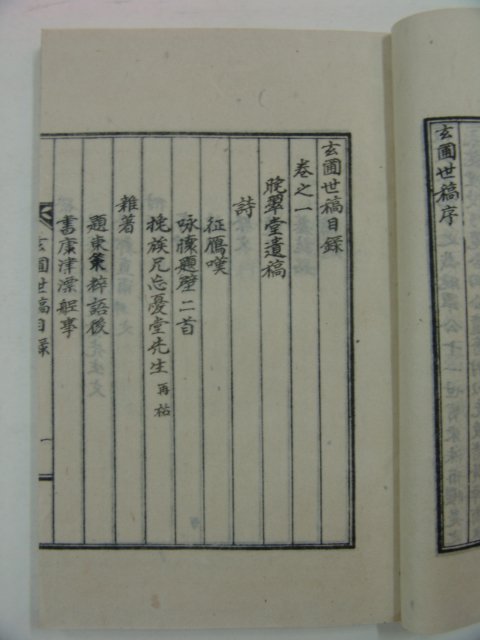 玄圃世稿序
玄圃世稿目録
卷之一
晩翠堂遺稿
詩
征鴈嘆
咏懐題壁二首
挽族兄忘憂堂先生 再祐
雜著
題東策粹語後
書康津漂艇事
玄圃世稿目録
一